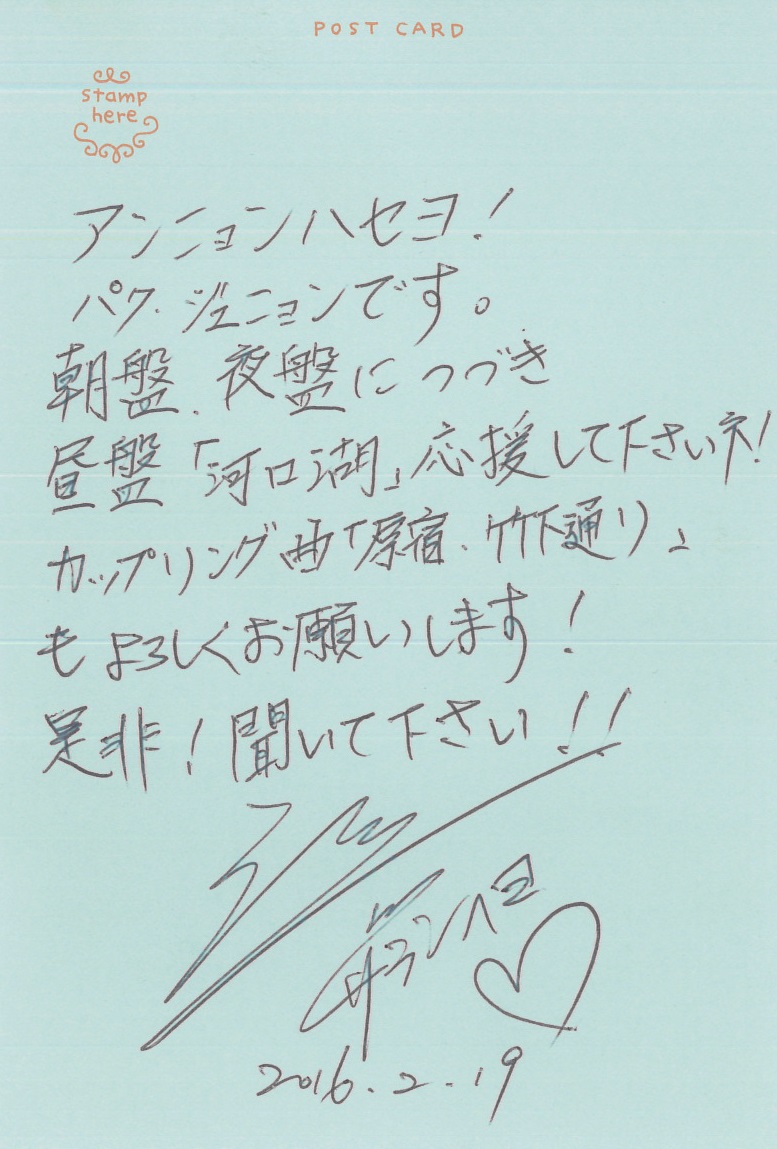 POST CARD
stamp
here
アンニョンハセヨ!
パク・ジュニョンです。
朝盤、夜盤につづき
昼盤「河口湖」応援して下さいネ!
カップリング曲「原宿、竹下通り」
もよろしくお願いします!
是非!聞いて下さい!!
サランヘヨ
2016.2.19